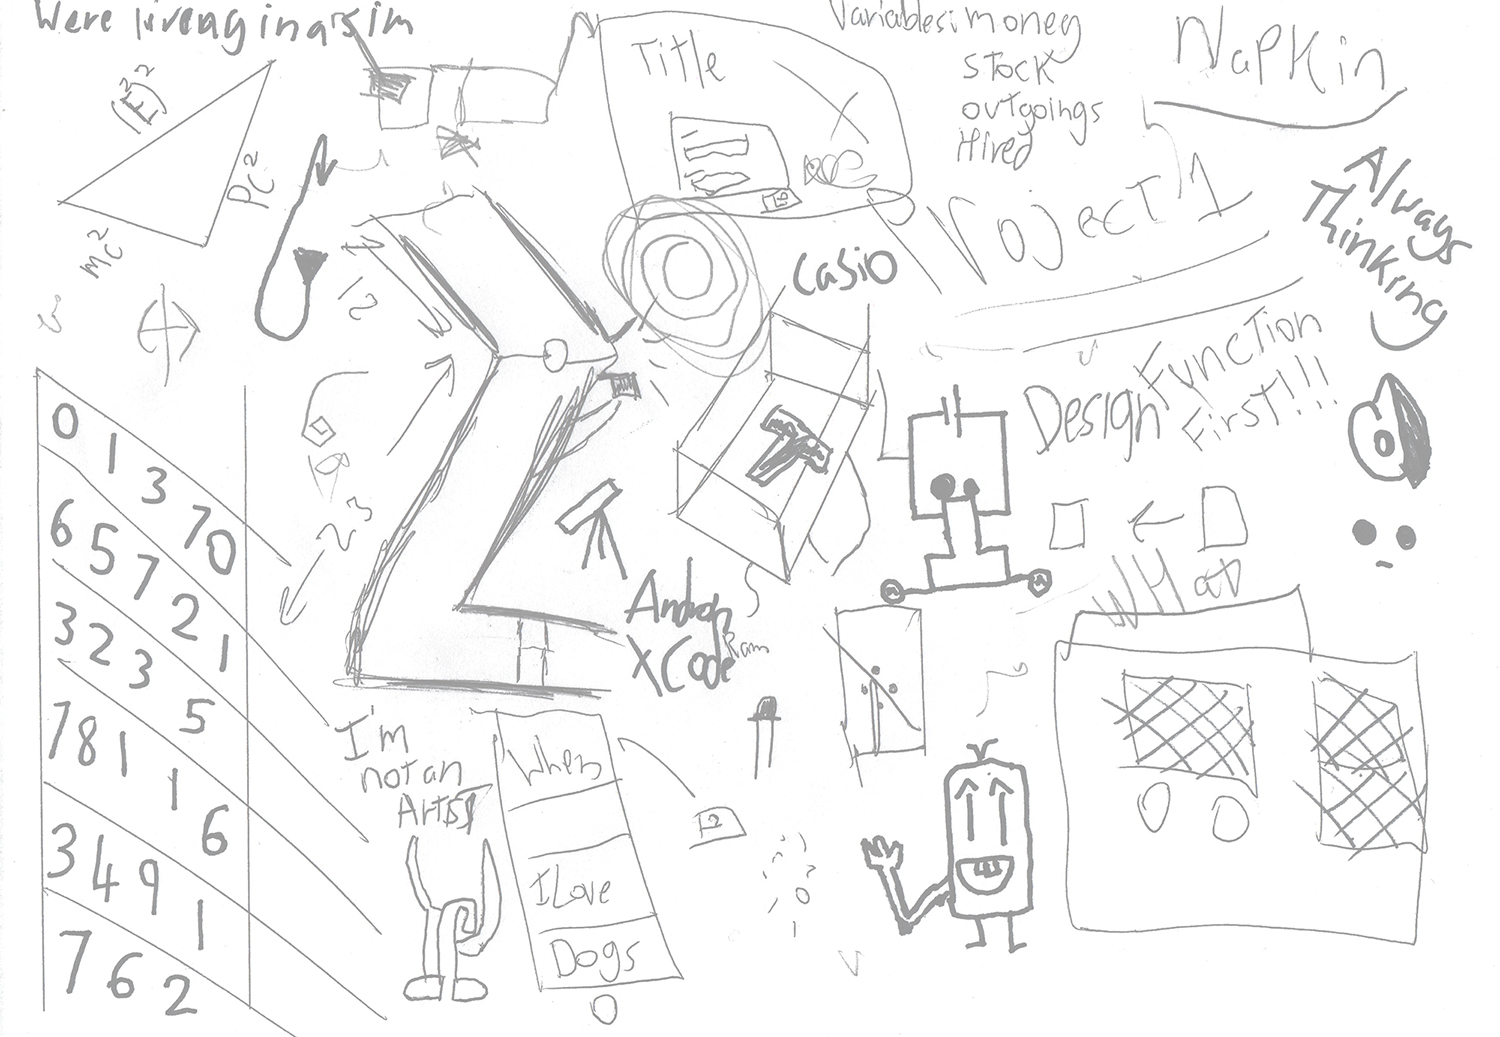 Were liveng in a sim
Title
Variables: money
stock
outgoings
Hired
Napkin
(E²)²
PC²
mc²
Project 1
Always
Thinking
Casio
12
Design Function
First!!!
0 1 3 70
6 5 7 2 1
3 2 3 5
7 8 1 1 6
3 4 9 1
7 6 2
2.3
WHat
XCode
Ram
I'm
not an
Artist
When
I Love
Dogs